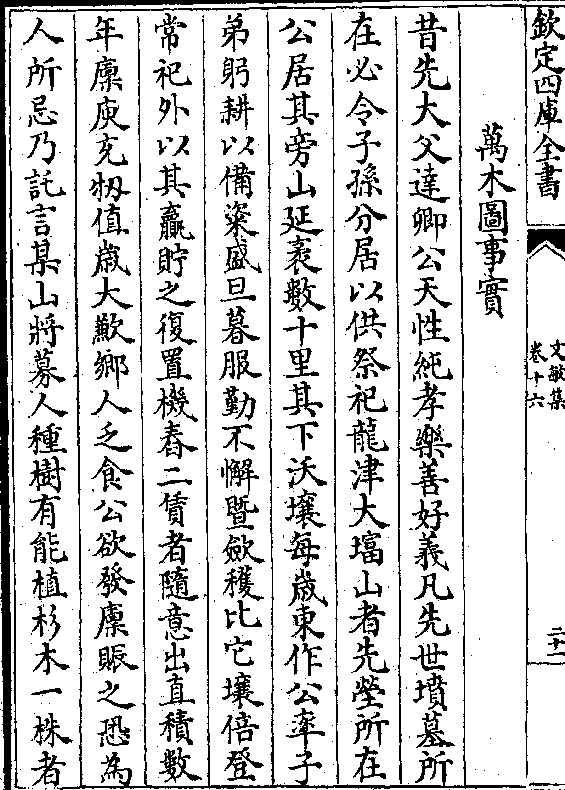 欽定四庫全書
文敏集
卷十六
二十一
萬木圖事實
昔先大父達卿公天性純孝樂善好義凡先世墳墓所
在必令子孫分居以供祭祀龍津大墖山者先塋所在
公居其旁山延袤數十里其下沃壤每歲東作公率子
弟躬耕以備粢盛旦暮服勤不懈暨斂穫比它壤倍登
常祀外以其贏貯之復置機舂二賃者隨意出直積數
年廪庾充牣值歲大歉鄉人乏食公欲發廪賑之恐為
人所忌乃託言某山將募人種樹有能植杉木一株者